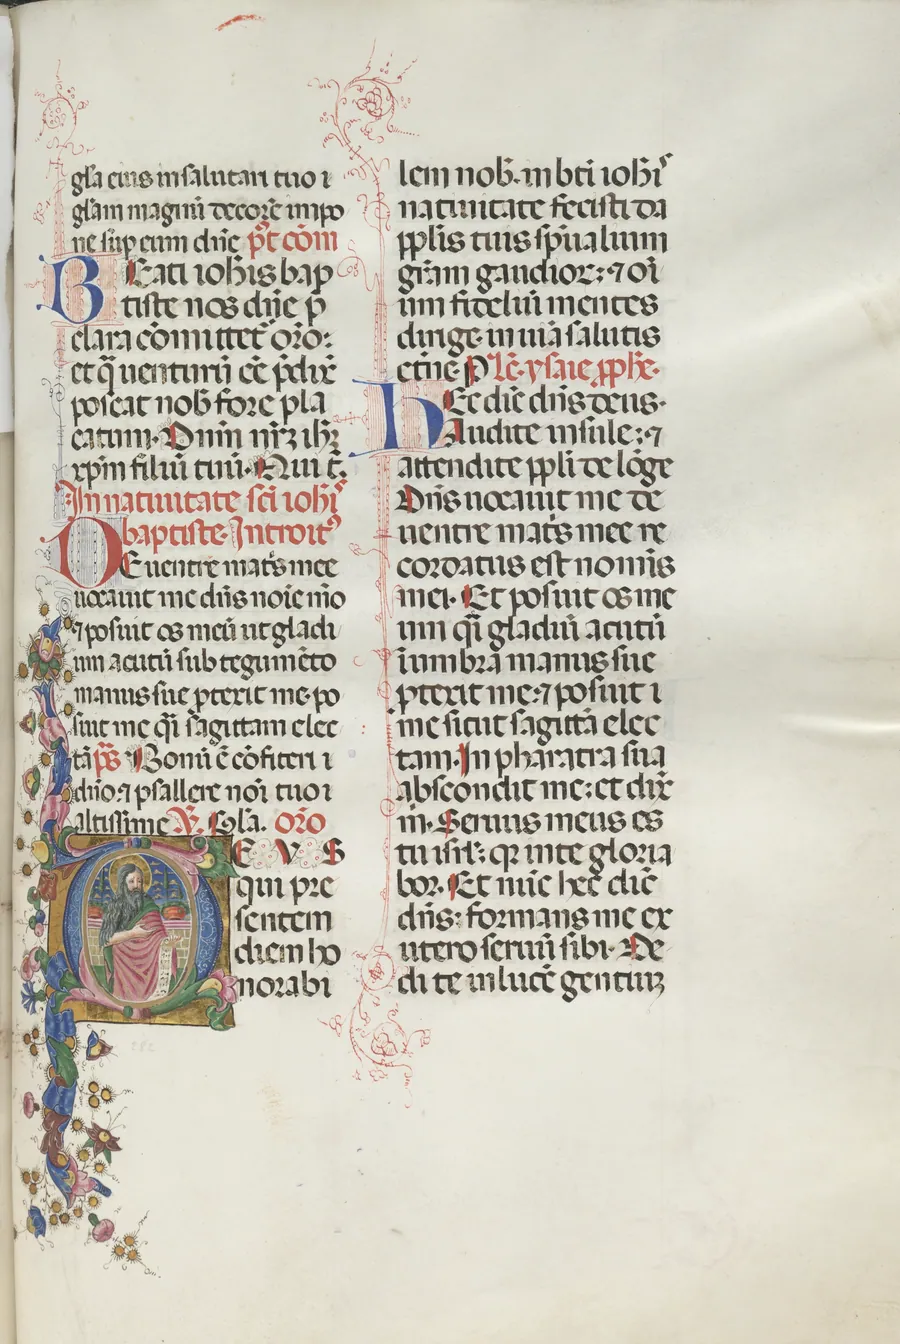 gl̃a eius in salutari tuo ⁊
gl̃am magnũ decorẽ impo
ne sup eum dñe p̃t cõm
BEati ioh̃is bap
tiste nos dñe p̃
clara cõmittet̃ orõ:
et q̃ uenturũ cẽ p̃dix̃
poscat nob̃ fore pla
catum. Dnm̃ nr̃z ih̃z
xp̃m filiũ tuũ. Qui t̃.
In natiuitate sc̃i ioh̃is
baptiste. Introit9
DE uentre mat̃s mee
uocauit me dñs noĩe mõ
⁊ posuit os meũ ut gladi
um acutũ sub tegumẽto
manus sue p̱texit me. po
suit me q̃i sagittam elec
tã p̃s Bonũ ẽ cõfiteri ⁊
dño. ⁊ psallere noĩ tuo ⁊
altissime V̓. Gl̃a. orõ
DEVS
qui pre
sentem
diem ho
norabi
lem nob̃. in bt̃i ioh̃is
natiuitate fecisti da
pp̃lis tuis sp̃ualium
gr̃am gaudioꝝ: ⁊ oĩ
um fidelium mentes
dirige in uiã salutis
et̃ne. P̱ Lc̃. ysaie p̱ph̃e.
HEc dic̃ dñs deus.
Audite insule: ⁊
attendite pp̃li de lõge
Dñs uocauit me de
uentre mat̃s mee re
cordatus est nominis
mei. Et posuit os me
um q̃i gladiũ acutũ
ĩ umbra manus sue
p̱texit me: ⁊ posuit ⁊
me sicut sagittã elec
tam. In pharatra sua
abscondit me: et dix̃
m̃. Seruus meus es
tu isr̃l: qꝛ in te gloria
bor. Et nũc hec dic̃
dñs: formans me ex
utero seruũ sibi. De
di te in lucẽ gentiuꝫ